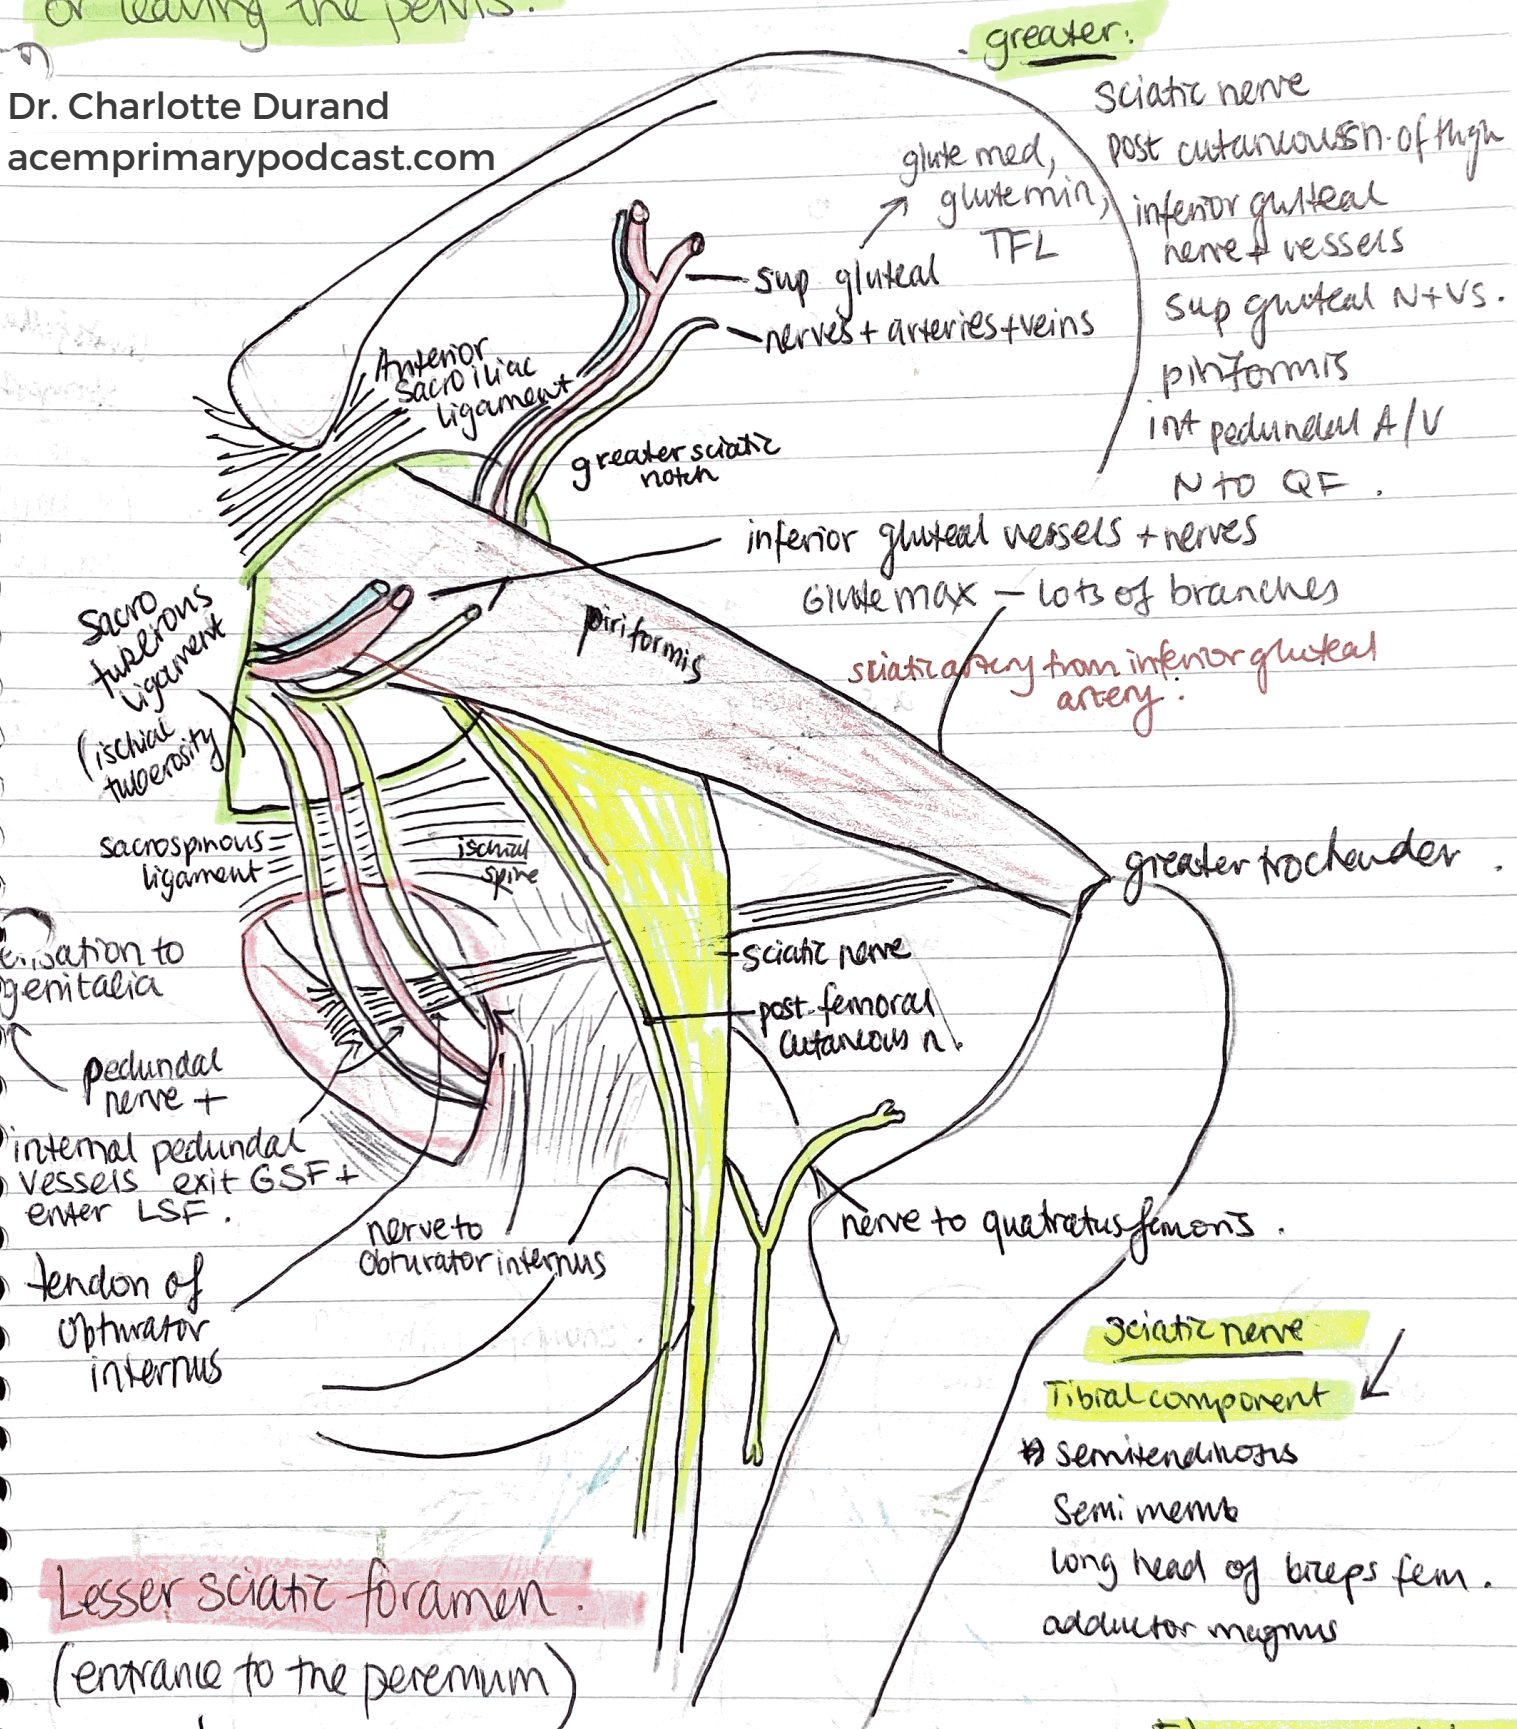 or leaving the pelvis.
Dr. Charlotte Durand
acemprimarypodcast.com
greater:
sciatic nerve
post cutaneoussn. of thigh
inferior gluteal
nerve + vessels
sup gluteal N+VS.
piriformis
int pedundal A/V
N to QF.
glute med,
glute min,
TFL
sup gluteal
nerves + arteries + veins
Anterior
sacroiliac
ligament
greater sciatic
notch
inferior gluteal vessels + nerves
Glute max — lots of branches
sciatic artery from inferior gluteal
artery.
piriformis
sacro
tuberous
ligament
(ischial
tuberosity
sacrospinous
ligament
ischial
spine
greater trochander.
sciatic nerve
post femoral
cutaneous n.
genitalia
pedundal
nerve +
internal pedundal
vessels exit GSF +
enter LSF.
nerve to
obturator internus
tendon of
obturator
internus
nerve to quatratus femoris.
sciatic nerve
Tibial component
semitendinosus
semi memb
long head of biceps fem.
adductor magnus
Lesser sciatic foramen.
(entrance to the peremum)